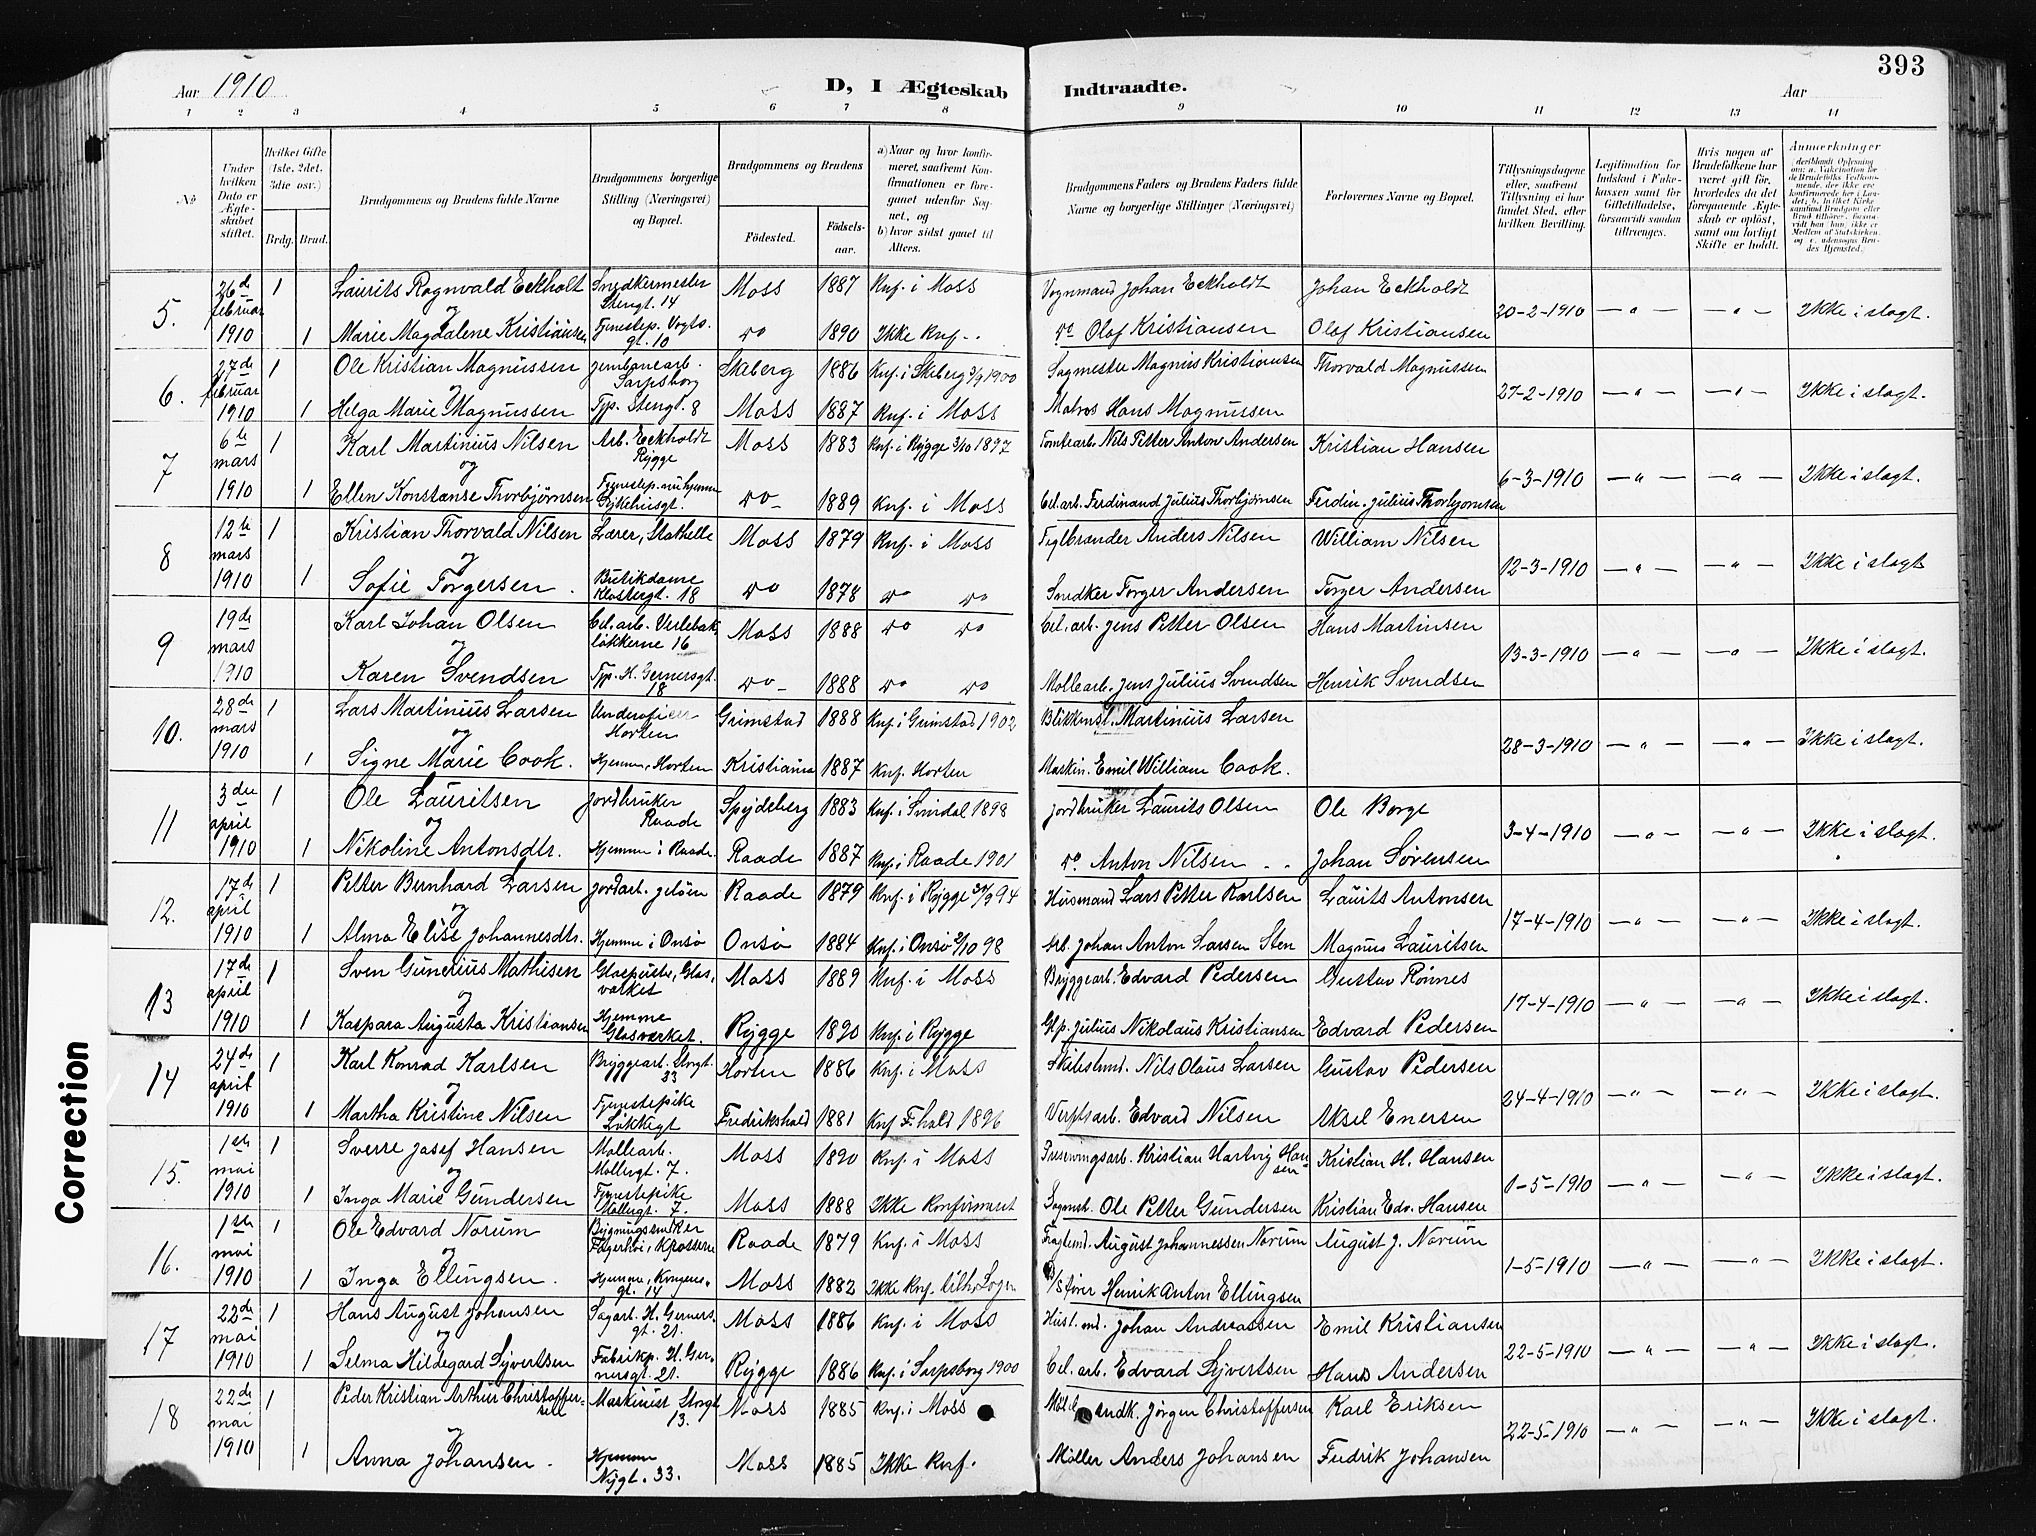 393
Aar 1910
D, I Ægteskab Indtraadte.
Aar
1 2 3 4 5 6 7 8 9 10 11 12 13 14
No
Under hvilken Dato er Ægteskabet stiftet.
Hvilket Gifte (1ste. 2det. 3die osv.)
Brdg. Brud.
Brudgommens og Brudens fulde Navne
Brudgommens borgerlige Stilling (Næringsvei) og Bopæl.
Brudgommens og Brudens
Fødested.
Fødselsaar.
a) Naar og hvor konfirmeret, saafremt Konfirmationen er foregaaet udenfor Sognet, og
b) hvor sidst gaaet til Alters.
Brudgommens Faders og Brudens Faders fulde Navne og borgerlige Stillinger (Næringsvei)
Forlovernes Navne og Bopæl.
Tillysningsdagene eller, saafremt Tillysning ei har fundet Sted, efter hvilken Bevilling.
Legitimation for Indskud i Enkekassen samt for Giftetilladelse, forsaavidt saadan tiltrænges.
Hvis nogen af Brudefolkene har været gift før, hvorledes da det foregaaende Ægteskab er opløst, samt om lovligt Skifte er holdt.
Anmærkninger
5. 26de februar 1910 1 Laurits Ragnvald Eckholt Snedkermester Stengt. 14 Moss 1887 Knf. i Moss Vognmand Johan Eckholdt Johan Eckholdt 20-2-1910 — " — — " — Ikke i slagt.
og
1 Marie Magdalene Kristiansen Tjenestep. Vogts. gt. 10 do 1890 Ikke Knf. do Olaf Kristiansen Olaf Kristiansen
6. 27de februar 1910 1 Ole Kristian Magnussen jernbanearb. Sarpsborg Skeberg 1886 Knf. i Skeberg 1900 Sagmester Magnus Kristiansen Thorvald Magnussen 27-2-1910 — " — — " — Ikke i slagt.
og
1 Helga Marie Magnussen Typ. Stengt. 8 Moss 1887 Knf. i Moss Matros Hans Magnussen
7 6te mars 1910 1 Karl Martinius Nilsen Arb. Eckholdt Rygge Moss 1883 Knf. i Rygge 3/10 1897 Tomtearb. Nils Petter Anton Andersen Kristian Hansen 6-3-1910 — " — — " — Ikke i slagt.
og
1 Ellen Konstanse Thorbjørnsen do 1889 Knf. i Moss Cel. arb. Ferdinand Julius Thorbjørnsen Ferdin. Julius Thorbjørnsen
8 12te mars 1910 1 Kristian Thorvald Nilsen Lærer, Stathelle Moss 1879 Knf. i Moss Teglbrænder Anders Nilsen William Nilsen 12-3-1910 — " — — " — Ikke i slagt
og
1 Sofie Torgersen Butikdame Klostergt. 18 do 1878 do do Snedker Torger Andersen Torger Andersen
9 19de mars 1910 Karl Johan Olsen Cel. arb. Verlebakløkkerne 16 Moss 1888 do do Cel. arb. Jens Petter Olsen Hans Martinsen 13-3-1910 — " — — " — Ikke i slagt.
og
Karen Svendsen Typ. H. Gernersgt. 18 do 1888 do do Møllearb. Jens Julius Svendsen Henrik Svendsen
10. 28de mars 1910 1 Lars Martinius Larsen Underoficer Horten Grimstad 1888 Knf. i Grimstad 1902 Blikkensl. Martinius Larsen 28-3-1910 — " — — " — Ikke i slagt.
og
1 Signe Marie Cook. Hjemme, Horten Kristiania 1887 Knf. Horten Maskin. Emil William Cook.
11 3die april 1910 1 Ole Lauritsen Jordbruker Raade Spydeberg 1883 Knf. i Svindal 1898 Jordbruker Laurits Olsen Ole Borge 3-4-1910 — " — — " — Ikke i slagt.
og
1 Nikoline Antonsdtr. Hjemme i Raade. Raade 1887 Knf. i Raade 1901 do Anton Nilsen Johan Sørensen
12. 17de april 1910 1 Petter Bernhard Larsen Jordarb. Jeløen Raade 1879 Knf. i Rygge 94 Husmand Lars Petter Karlsen Laurits Antonsen 17-4-1910 — " — — " — Ikke i slagt.
og
1 Alma Elise Johannesdtr. Hjemme i Onsø Onsø 1884 Knf. i Onsø 2/10 98 Arb. Johan Anton Larsen Sten Magnus Lauritsen
13 17de april 1910 1 Sven Gunerius Mathisen Glaspuster, Glasværket Moss 1889 Knf. i Moss Bryggearb. Edvard Pedersen Gustav Rønnes 17-4-1910 — " — — " — Ikke i slagt.
og
1 Kaspara Augusta Kristiansen Hjemme Glasværket. Rygge 1890 Knf. i Rygge Glp. Julius Nikolaus Kristiansen Edvard Pedersen
14 24de april 1910 1 Karl Konrad Karlsen Bryggearb. Storgt. 33 Horten 1886 Knf. i Moss Nils Olaus Larsen Gustav Pedersen 24-4-1910 — " — — " — Ikke i slagt.
og
1 Martha Kristine Nilsen Tjenestepike Løkkegt Fredrikshald 1881 Knf F.hald 1896 Verftsarb. Edvard Nilsen Aksel Enersen
15. 1ste mai 1910 1 Sverre Josef Hansen Møllearb. Møllergt. 7. Moss 1890 Knf. i Moss Kristian Hartvig Hansen Kristian H. Hansen 1-5-1910 — " — — " — Ikke i slagt.
og
1 Inga Marie Gundersen Tjenestepike Møllergt. 7. Moss 1888 Ikke Konfirmeret Ole Petter Gundersen Kristian Edv. Hansen
16. 1ste mai 1910 1 Ole Edvard Norum Bygningssnekker Fagerhøi, Krosserne Raade 1879 Knf. i Moss August Johannessen Norum August J. Norum 1-5-1910 — " — — " — Ikke i slagt.
og
1 Inga Ellingsen. Hjemme, Kongensgt. 14 Moss 1882 Ikke Knf. Henrik Anton Ellingsen
17 22de mai 1910 1 Hans August Johansen Sagarb. H. Gernersgt. 21. Moss 1886 Knf. i Moss Johan Andreassen Emil Kristiansen 22-5-1910 — " — — " — Ikke i slagt.
og
1 Selma Hildegard Syvertsen Fabrikp. H. Gernersgt. 21. Rygge 1886 Knf. i Sarpsborg 1900 Cel. arb. Edvard Syvertsen Hans Andersen
18 22de mai 1910 1 Peder Kristian Arthur Christoffersen Maskinist Storgt 13. Moss 1885 Knf. i Moss Jørgen Christoffersen Karl Eriksen 22-5-1910 — " — — " — Ikke i slagt.
og
1 Anna Johansen. Hjemme Nygt. 33. Moss 1885 Ikke Knf. Møller Anders Johansen Fredrik Johansen
Correction